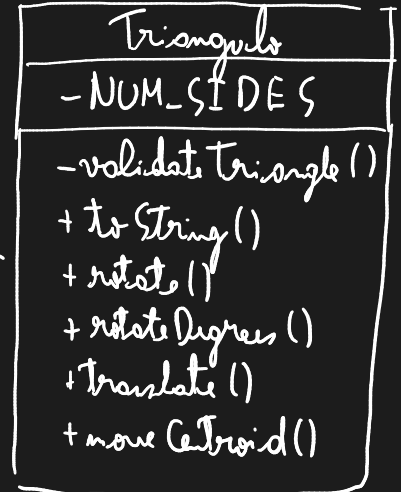 Triangulo
-NUM_SIDES
-validateTriangle()
+ toString()
+ rotate()
+ rotateDegrees()
+translate()
+move Centroid()